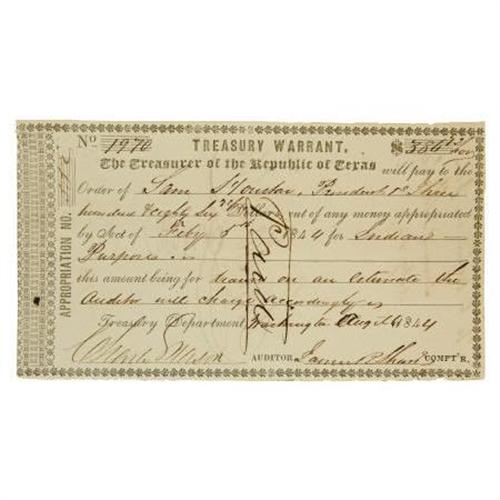 No 1970 TREASURY WARRANT. $386
The Treasurer of the Republic of Texas will pay to the
Order of Sam Houston, President &c Three
hundred & eighty six Dollars out of any money appropriated
by Act of Feby 5th 1844 for Indian
Purposes
this amount being for on an estimate the
Auditor will charge accordingly
Treasury Department, Washington Augt 6 1844
Charles Mason AUDITOR. James B Shaw COMPT'R.
APPROPRIATION NO.
Paid